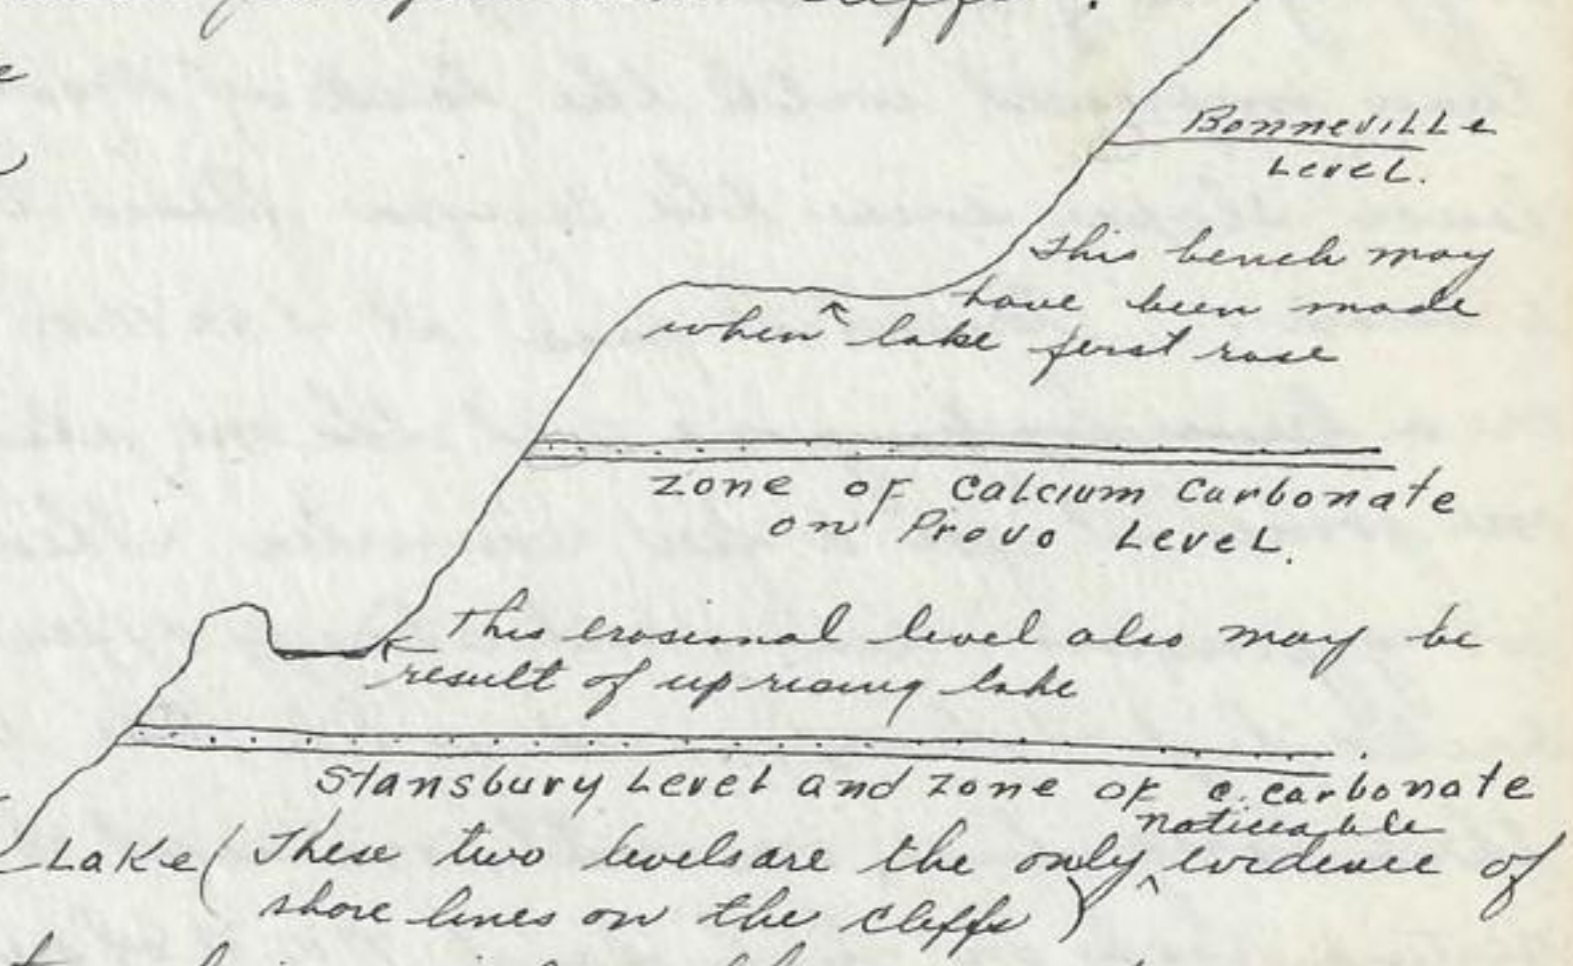 cliffs.
Bonneville
Level.
This bench may
have been made
when lake first rose
Zone of Calcium Carbonate
on Provo Level.
This erosional level also may be
result of up rising lake
Stansbury Level and zone of c. carbonate
noticeable
Lake (These two levels are the only ^ evidence of
shore lines on the cliffs)